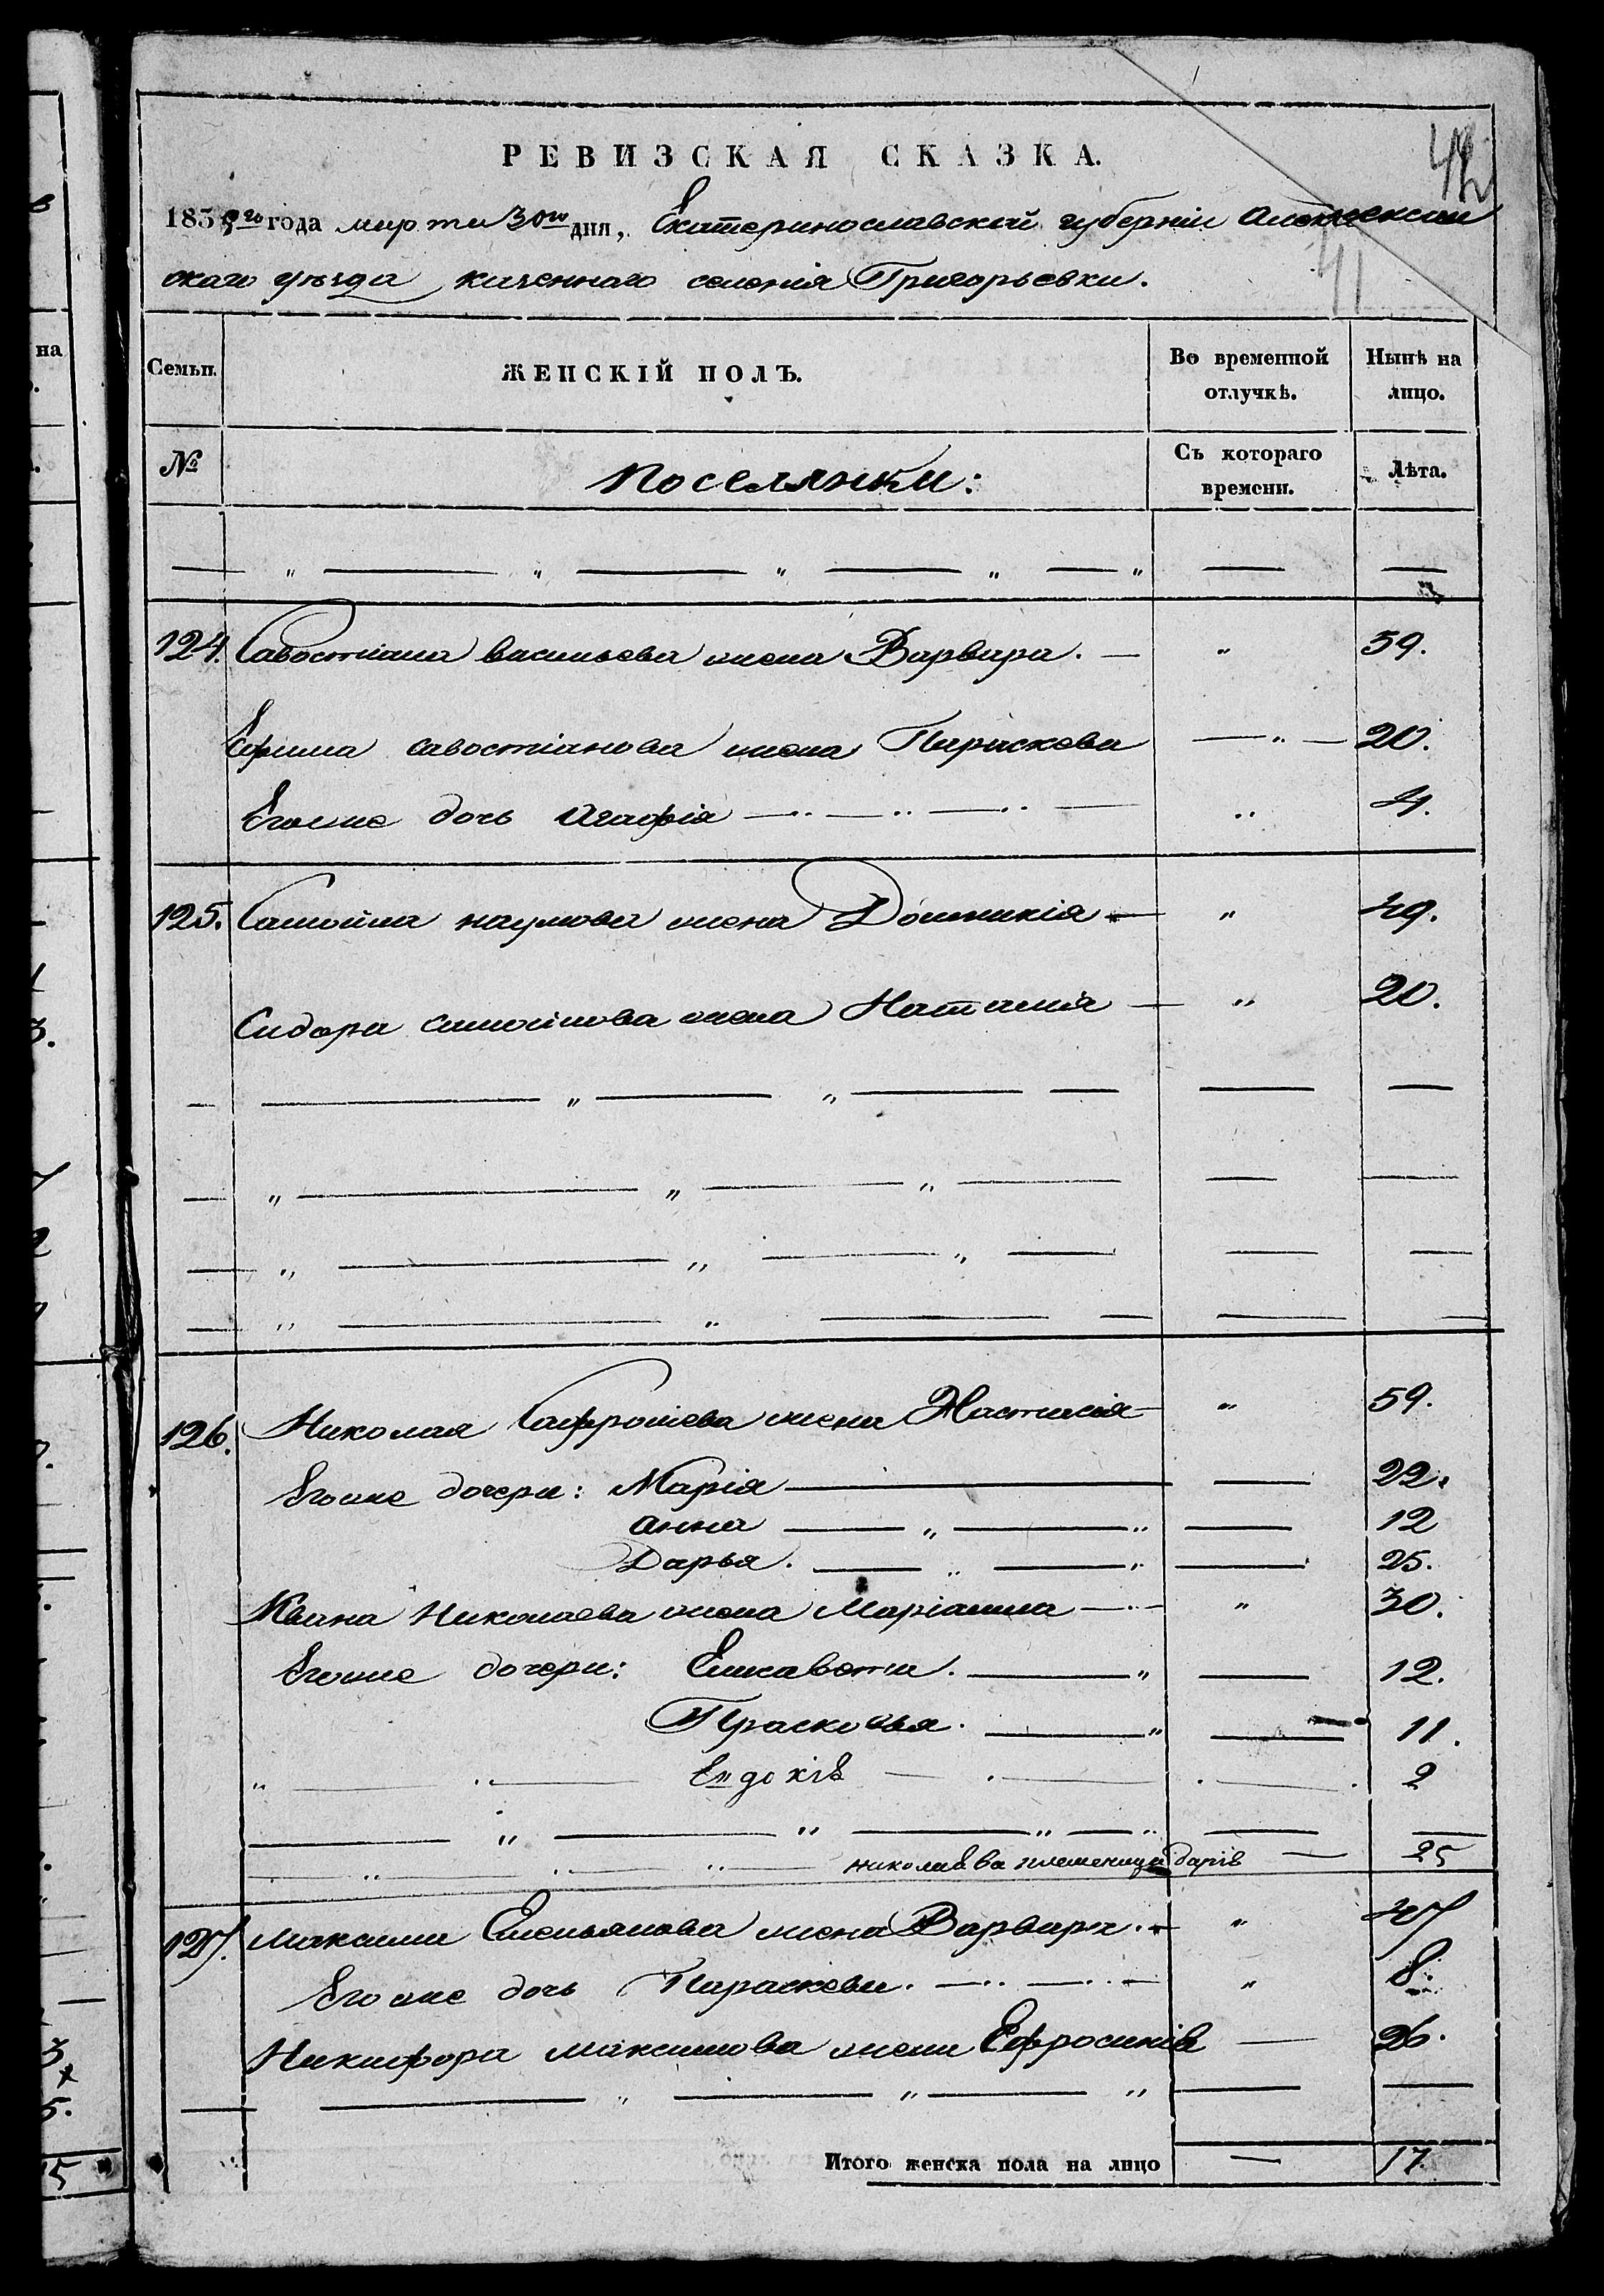 42
РЕВИЗСКАЯ СКАЗКА.
1835го года марта 30го дня, Екатеринославской губерніи Алексан
41
скаго уѣзда казеннаго селенія Григорьевки.
Семьи. ЖЕНСКІЙ ПОЛЪ. Во временной отлучкѣ. Нынѣ на лицо.
№ Поселянки: Съ котораго времени. Лѣта.
124. Савостіана Васильева жена Варвара. — " 59.
Ефима савостіанова жена Параскева — " — 20.
Егоже дочь Агафія — " — " — " — " 4.
125. Самойла наумова жена Домникія — " 49.
Сидора самойлова жена Наталія — " 20.
126. Николая Сафронова жена Настасія — " 59.
Егоже дочери: Марія — 22.
анна — " — " — 12
Дарья. — " — " — 25.
Ивана Николаева жена Маріанна — " 30.
Егоже дочери: Елисавета. — " — 12.
Прасковья. — " — 11.
Евдокія — 2
николаева племеница дарія — 25
127. Максима Емельянова жена Варвара. — " 47
Егоже дочь Параскева. — " 8.
Никифора максимова жена Ефросинія — 26.
Итого женска пола на лицо — 17